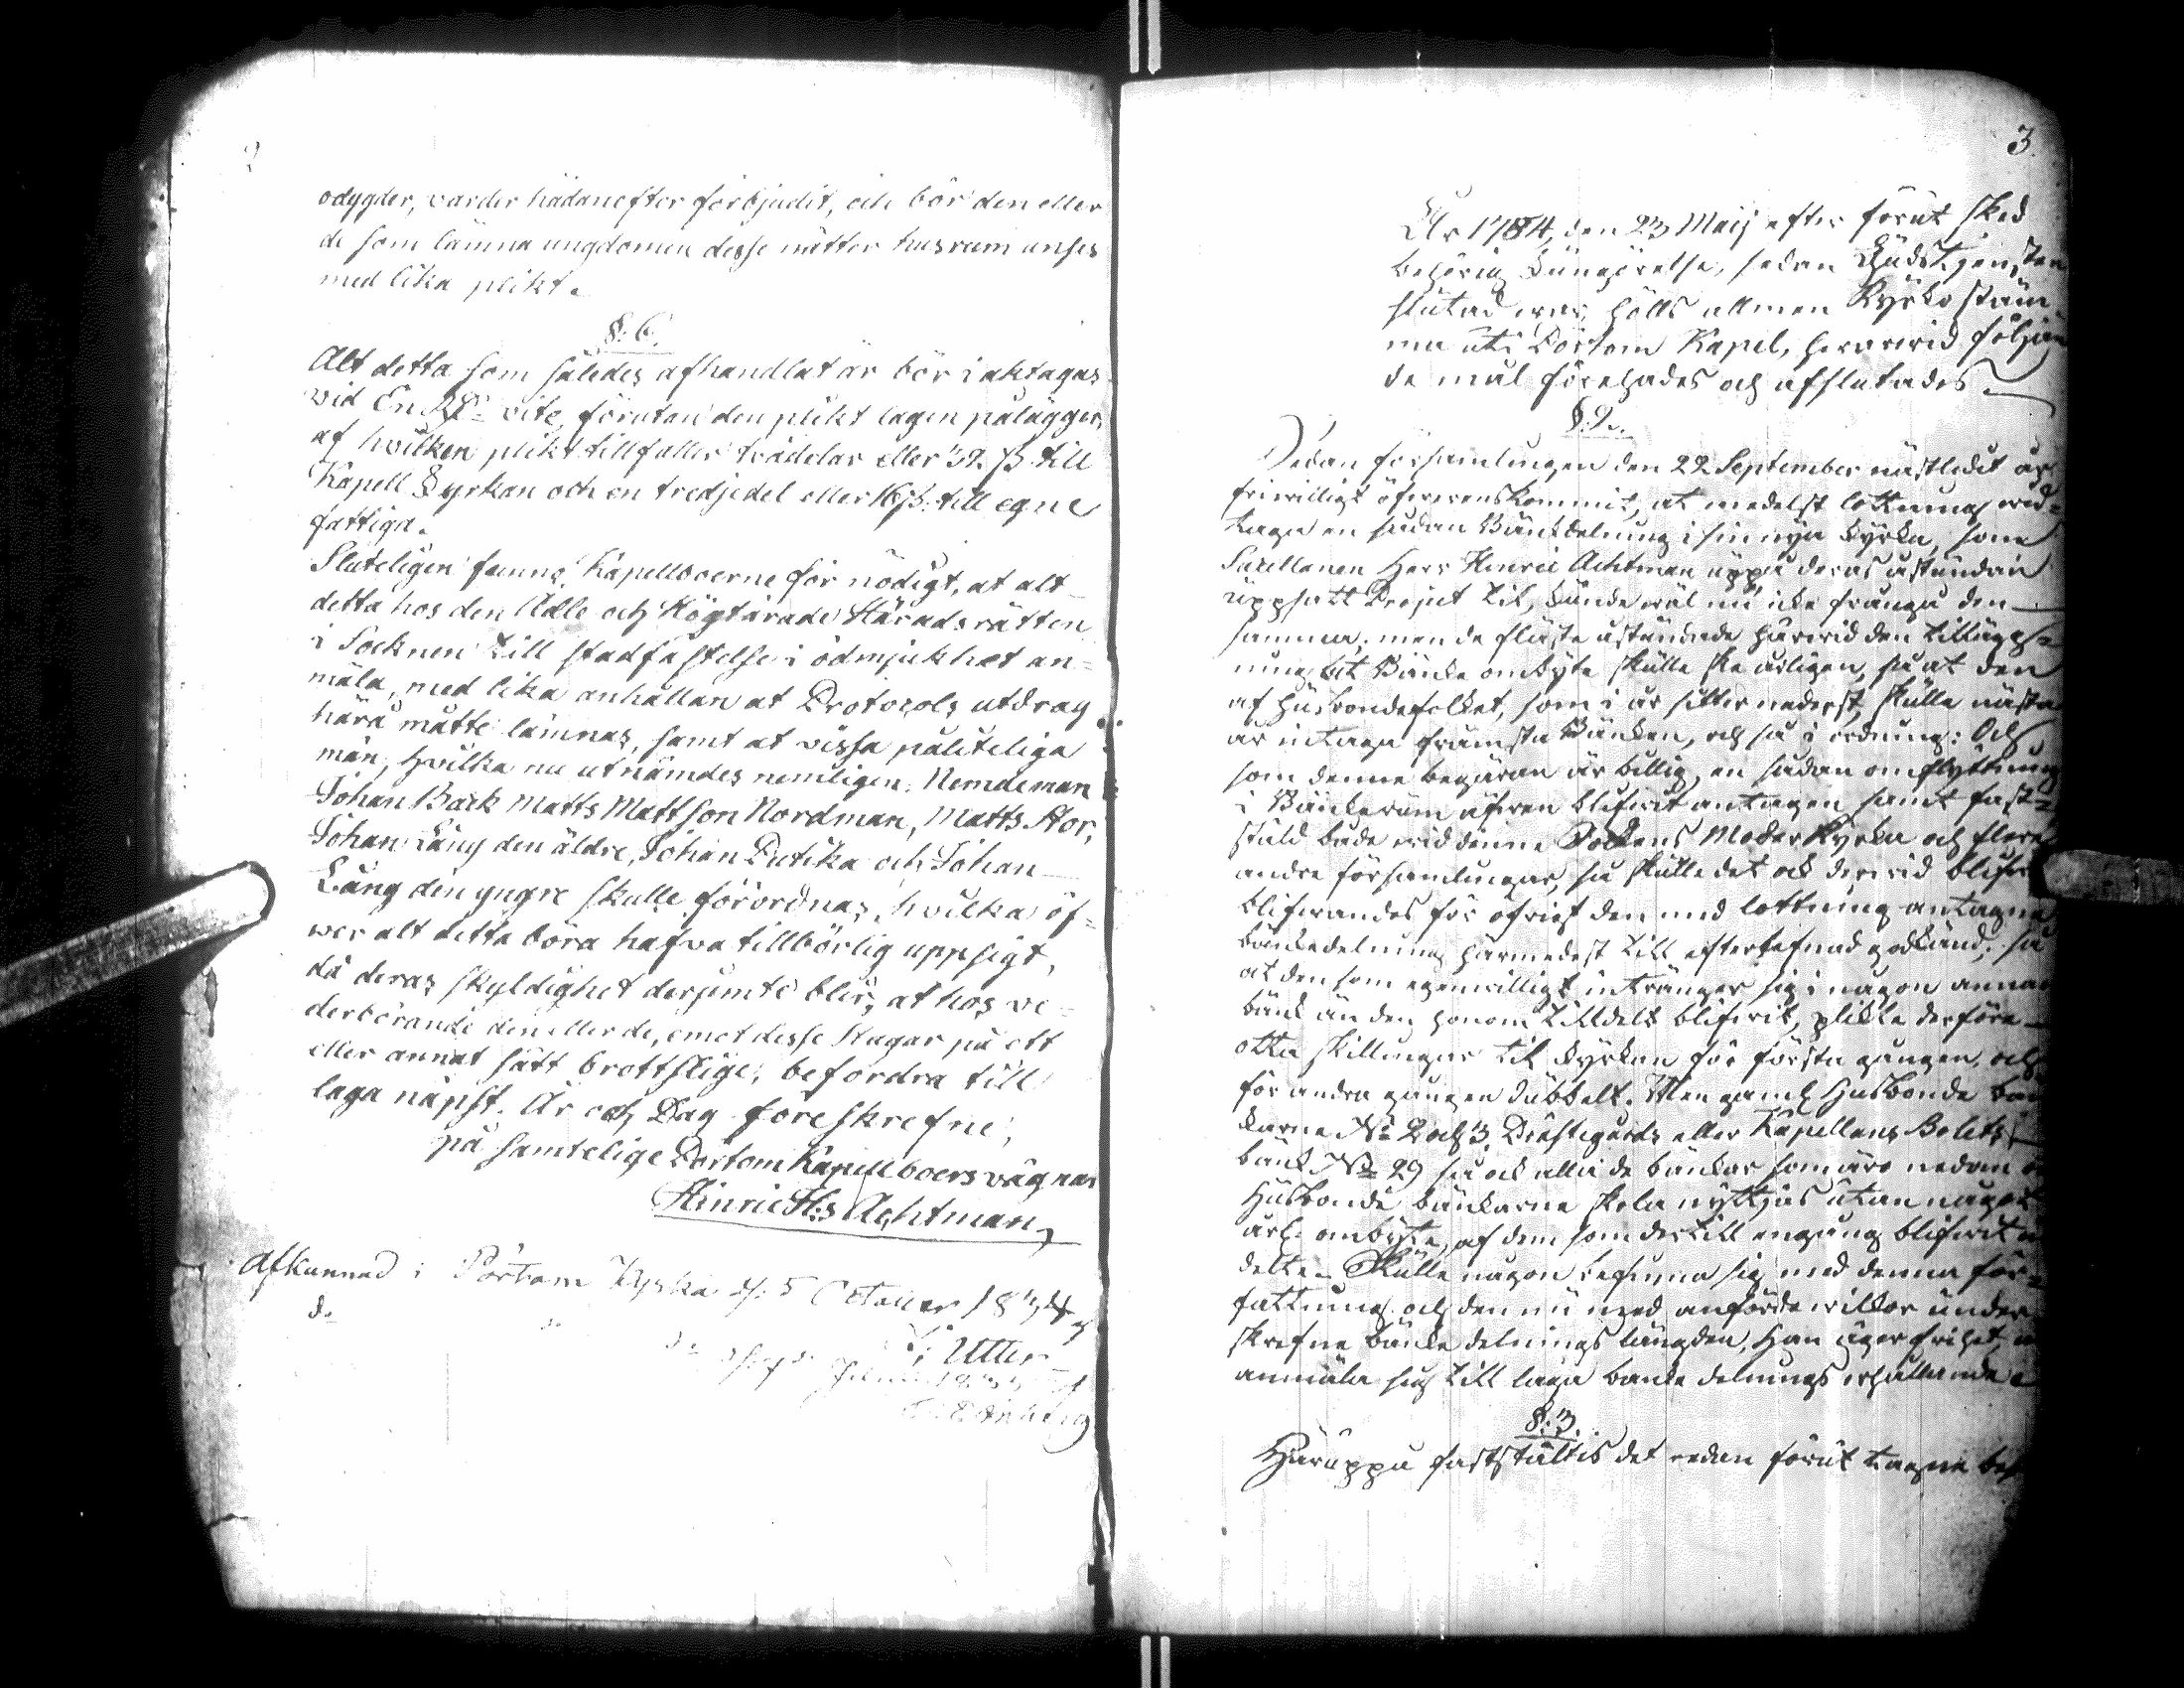 2
odygder, varder hädanefter förbjudit, och bör den eller
de som lämna ungdomen desse nätter husrum anses
med lika plikt.
§. 6.
Alt detta som således afhandlat är bör i akttagas
vid En Rd:r vite, förutan den plikt lagen pålägger,
af hvilken plikt tillfaller tvådelar eller 32 ß till
Kapell Kyrkan och en tredjedel eller 16 ß. till egne
fattiga.
Sluteligen funno Kapellboerne för nödigt, at alt
detta hos den Ädle och Högtärade Häradsrätten
i Socknen till stadfästelse i ödmjukhet an=
mäla, med lika anhållan at Protocols utdrag
härå måtte lämnas, samt at vissa påliteliga
män, hvilka nu utnämdes nemligen: Nemdeman
Johan Back Matts Mattsson Nordman, Matts Stor,
Johan Lång den äldre, Johan Putika och Johan
Lång den yngre skulle förordnas, hvilka öf=
wer alt detta böra hafva tillbörlig uppsigt,
då deras skyldighet derjemte blir, at hos ve=
derbörande den eller de, emot desse Stagar på ett
eller annat sätt brottslige, befordra till
laga näpst. År och Dag föreskrefne,
på samtelige Pörtom Kapellboers vägnar
Hinric H:s Achtman
Afkunnad i Pörtom Kyrka d. 5 October 1834
d:o
Utter
3.
År 1784, den 23 Maij efter förut sked
behörig Kungörelse, sedan Gudstjensten
slutad war, hölls allmen Kyrkostäm
ma uti Pörtom Kapel, hwarwid följan
de mål förehades och afslutades
§. 2.
Sedan församlingen den 22 September nästledit år
friwilligt öfwerenskommit, at medelst lottning wid=
taga en sådan Bänkdelning i sin nya kyrka, som
Sacellanen Herr Hinric Achtman uppå deras åstundan
uppsatt Project til, kunde wäl nu icke frångå den
samma, men de fläste åstundade härwid den tilläggs=
ning, at Bänke ombyte skulle ske årligen, så at den
af Husbondefolket, som i år sitter nederst, skulle nästa
år intaga främsta Bänken, och så i ordning: Och
som denne begäran är billig, en sådan omflyttning
i Bänkerum äfwen blifwit antagen samt fast=
stäld både wid denne Sockens Moder Kyrka och flere
andre församlingar, så skulle det ock derwid blifwa
blifwandes för öfrigt den med lottning antagna
bänkedelning härmedest till efterlefnad godkänd; så
at den som egenwilligt intränger sig i någon annan
bänk än den honom tilldelt blifwit, plikte derföre
otta skillingar til kyrkan för första gången, och
för andra gången dubbelt. Men gamle Husbonde bän
karne N:o 2 och 3, Prästegårds eller Kapellans Bolets
bänk N:o 29 så ock alla de bänkar som äro nedan
Husbonde bänkarne skola nyttjas utan något
årl. ombyte, af dem som dertill engång blifwit
delte. Skulle någon befinna sig med denna för=
fattning och den nu med anförde wilkor under
skrefne bänke delnings längden, Han äger frihet
anmäla sig till laga bänke delnings erhållande
§. 3.
Häruppå fastställtes det redan förut tagne